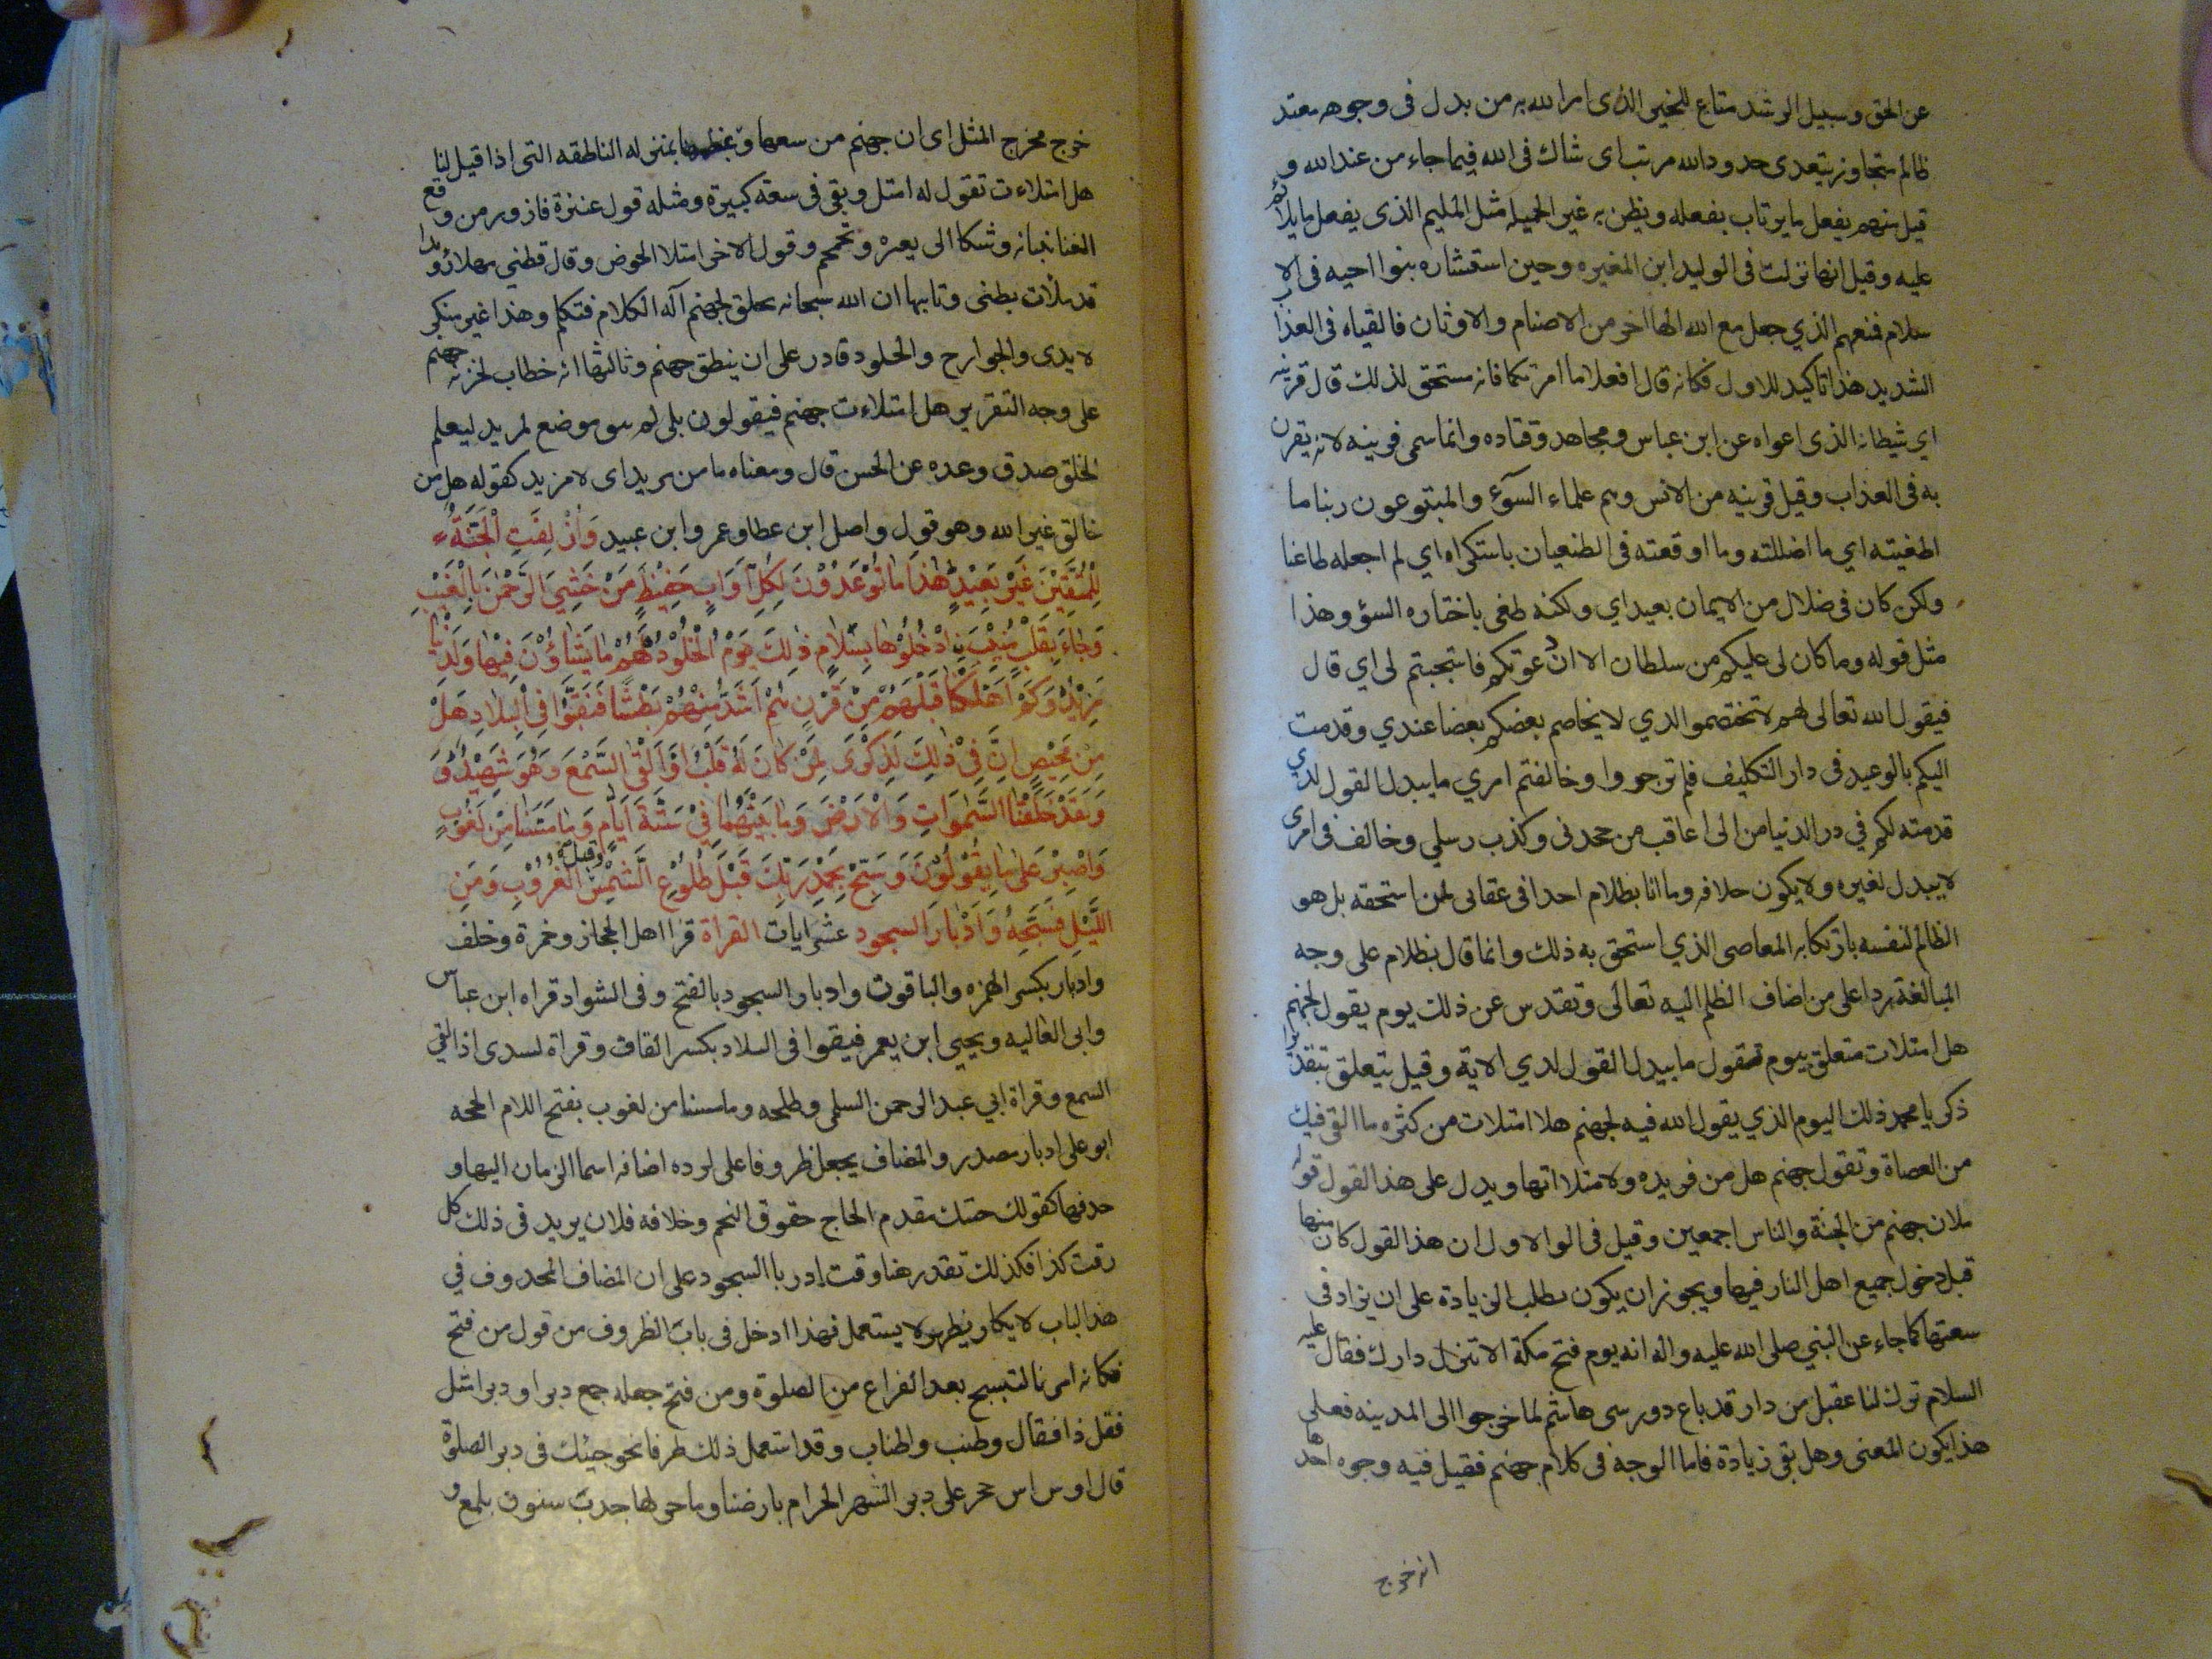 عن الحق وسبيل الرشد مناع للخير الذى امر الله به من بدل فى وجوهه معتد
ظالم متجاوز يتعدى حدود الله مرتب اى شاك فى الله فيما جاء من عند الله و
قيل منهم يفعل ما يرتاب بفعله ويظن به غير الجميله مثل المليم الذى يفعل ما يلائم
عليه وقيل انها نزلت فى الوليد ابن المغيره وحين استشاره بنوا اخيه فى الا
سلام فنعهم الذي جعل مع الله الها اخر من الاصنام والاوثان فالقياه فى العذاب
الشديد هذا تاكيد للاول فكانه قال افعلا ما امرتكما فانه مستحق لذلك قال قرينه
اي شيطانه الذى اغواه عن ابن عباس ومجاهد وقتاده وانما سمى قرينه لانه يقرن
به فى العذاب وقيل قرينه من الانس وهم علماء السوء والمبتوعون ربنا ما
اطغيته اي ما اضللته وما اوقعته فى الطغيان باستكراه اي لم اجعله طاغيا
ولكن كان فى ضلال من الايمان بعيد اي ولكنه طغى باختاره السؤ وهذا
مثل قوله وما كان لى عليكم من سلطان الا ان دعوتكم فاستجبتم لى اي قال
فيقول الله تعالى لهم لا تختصموا لدي لا يخاصم بعضكم بعضا عندي وقدمت
اليكم بالوعيد فى دار التكليف فلم توجروا وخالفتم امري ما يبدل القول لدي
قدمته لكم في در الدنيا من انى اعاقب من جحدنى وكذب رسلي وخالف فى امرى
لا يبدل لغيره ولا يكون خلافه وما انا بظلام احدا فى عقابى لمن استحقه بل هو
الظالم لنفسه بارتكابه المعاصى الذي استحق به ذلك وانما قال بظلام على وجه
المبالغة ردا على من اضاف الظلم اليه تعالى وتقدس عن ذلك يوم يقول لجهنم
هل امتلات متعلق بيوم تقول ما يبدل القول لدي الاية وقيل يتعلق بتقدير
ذكر يا محمد ذلك اليوم الذي يقول الله فيه لجهنم هلا امتلات من كثره ما القى فيك
من العصاة وتقول جهنم هل من فريده ولامتلا اتها ويدل على هذ القول قوله
ملان جهنم من الجنة والناس اجمعين وقيل فى الوالاول ان هذ القول كان منها
قبل دخول جميع اهل النار فيها ويجوز ان يكون بطلب الزيادة على ان يزاد فى
سعتها كما جاء عن النبي صلى الله عليه واله انه يوم فتح مكة الا تنزل دارك فقال عليه
السلام ترك لنا عقيل من دار قد باع دور بنى هاشم لما خرجوا الى المدينه فعلى
هذا يكون المعنى وهل بقى زيادة فاما الوجه فى كلام جهنم فقيل فيه وجوه احدها
انه خرج
خرج مخرج المثل اى ان جهنم من سعها و بمنزله الناطقه التى اذا قيل لنا
هل امتلاءت تقول له امتل وبقى فى سعة كبيرة ومثله قول عنترة فازور من وقع
القنا بلبانه وشكا الى بعبره وتحمحم وقول الاخر امتلا الحوض وقال قطني مهلا رويدا
قد ملأت بطنى وثانيها ان الله سبحانه يخلق لجهنم آله الكلام فتكلم وهذا غير منكر
لا يدى والجوارح والجلود قادر على ان ينطق جهنم وثالثها انه خطاب لخزنه جهنم
على وجه التقرير هل امتلاءت جهنم فيقولون بلى لم يبق موضع لمزيد ليعلم
الخلق صدق وعده عن الحسن قال ومعناه ما من مزيد اى لا مزيد كقوله هل من
خالق غير الله وهو قول واصل ابن عطا وعمرو ابن عبيد وَاُزْلِفَتِ الْجَنَّةُ
لِلْمُتَّقِيْنَ غَيْرَ بَعِيْدٍ هٰذَا مَا تُوْعَدُوْنَ لِكُلِّ اَوَّابٍ حَفِيْظٍ مَنْ خَشِيَ الرَّحْمٰنَ بِالْغَيْبِ
وَجَاءَ بِقَلْبٍ مُنِيْبٍ نِ ادْخُلُوْهَا بِسَلاَمٍ ذٰلِكَ يَوْمُ الْخُلُوْدِ لَهُمْ مَا يَشَاؤُنَ فِيْهَا وَلَدَيْنَا
مَزِيْدٌ وَكَمْ اَهْلَكْنَا قَبْلَهُمْ مِنْ قَرْنٍ هُمْ اَشَدُّ مِنْهُمْ بَطْشًا فَنَقَّبُوا فِي الْبِلاَدِ هَلْ
مِنْ مَحِيْصٍ اِنَّ فِيْ ذٰلِكَ لَذِكْرَى لِمَنْ كَانَ لَهُ قَلْبٌ اَوْ اَلْقَى السَّمْعَ وَهُوَ شَهِيْدٌ وَ
وَلَقَدْ خَلَقْنَا السَّمٰوَاتِ وَالْاَرْضَ وَمَا بَيْنَهُمَا فِيْ سِتَّةِ اَيَّامٍ وَمَا مَسَّنَا مِنْ لُغُوْبٍ
وَاصْبِرْ عَلٰى مَا يَقُوْلُوْنَ وَسَبِّحْ بِحَمْدِ رَبِّكَ قَبْلَ طُلُوْعِ الشَّمْسِ وَقَبْلَ الْغُرُوْبِ وَمِنَ
اللَّيْلِ فَسَبِّحْهُ وَاَدْبَارَ السجود عشر ايات القراة قرا اهل الحجاز وحمزة وخلف
وادبار بكسر الهمزه والباقون وادبار السجود بالفتح وفى الشواد قراه ابن عباس
وابى العاليه ويحيى ابن يعمر فيقوا فى البلاد بكسر القاف وقراة لسدى اذ القي
السمع وقراة ابي عبد الرحمن السلمى وطلحه وما مسنا من لغوب بفتح اللام الحجه
ابو على ادبار مصدر والمضاف يجعل ظروفا على لرده اضافه اسما الزمان اليها و
حدفها كقولك جئتك مقدم الحاج خفوق النجم وخلافه فلان يريد فى ذلك كل
وقت كذا فكذلك تقدر هنا وقت ادربا السجود على ان المضاف المحدوف في
هذ الباب لا يكاد يظهر ولا يستعمل فهذا ادخل فى باب الظروف من قول من فتح
فكانه امرنا لتسبيح بعد الفراغ من الصلوة ومن فتح جعله جمع دبر او دبر امثل
فقل ذا فقال وطنب واطناب وقد استعمل ذلك ظرفا نحو جيئك فى دبر الصلوة
قال اوس اس حجر على دبر الشهر الحرام بارضنا وما حولها جدبت سنون يلمع و